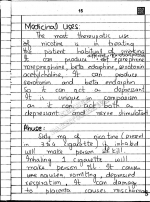 15
Medicinal Uses:
The most therapeutic use
of nicotine is in treating
the patient habitual of smoking
It can produce
norepinephrine, beta endophin, serotonin
acetylcholine, It can produce
serotonin and beta endophin
So it can act as depressant
It is unique in comparison
as it can act both a
depressant and nerve stimulation.
Abuse:
60mg of nicotine (present
in cigarette) if inhaled
will make person sick ill.
Inhaling 1 cigarette will
make a person ill. It cause
nausea, vomiting, depressed
respiration, It can damage
to placenta causes